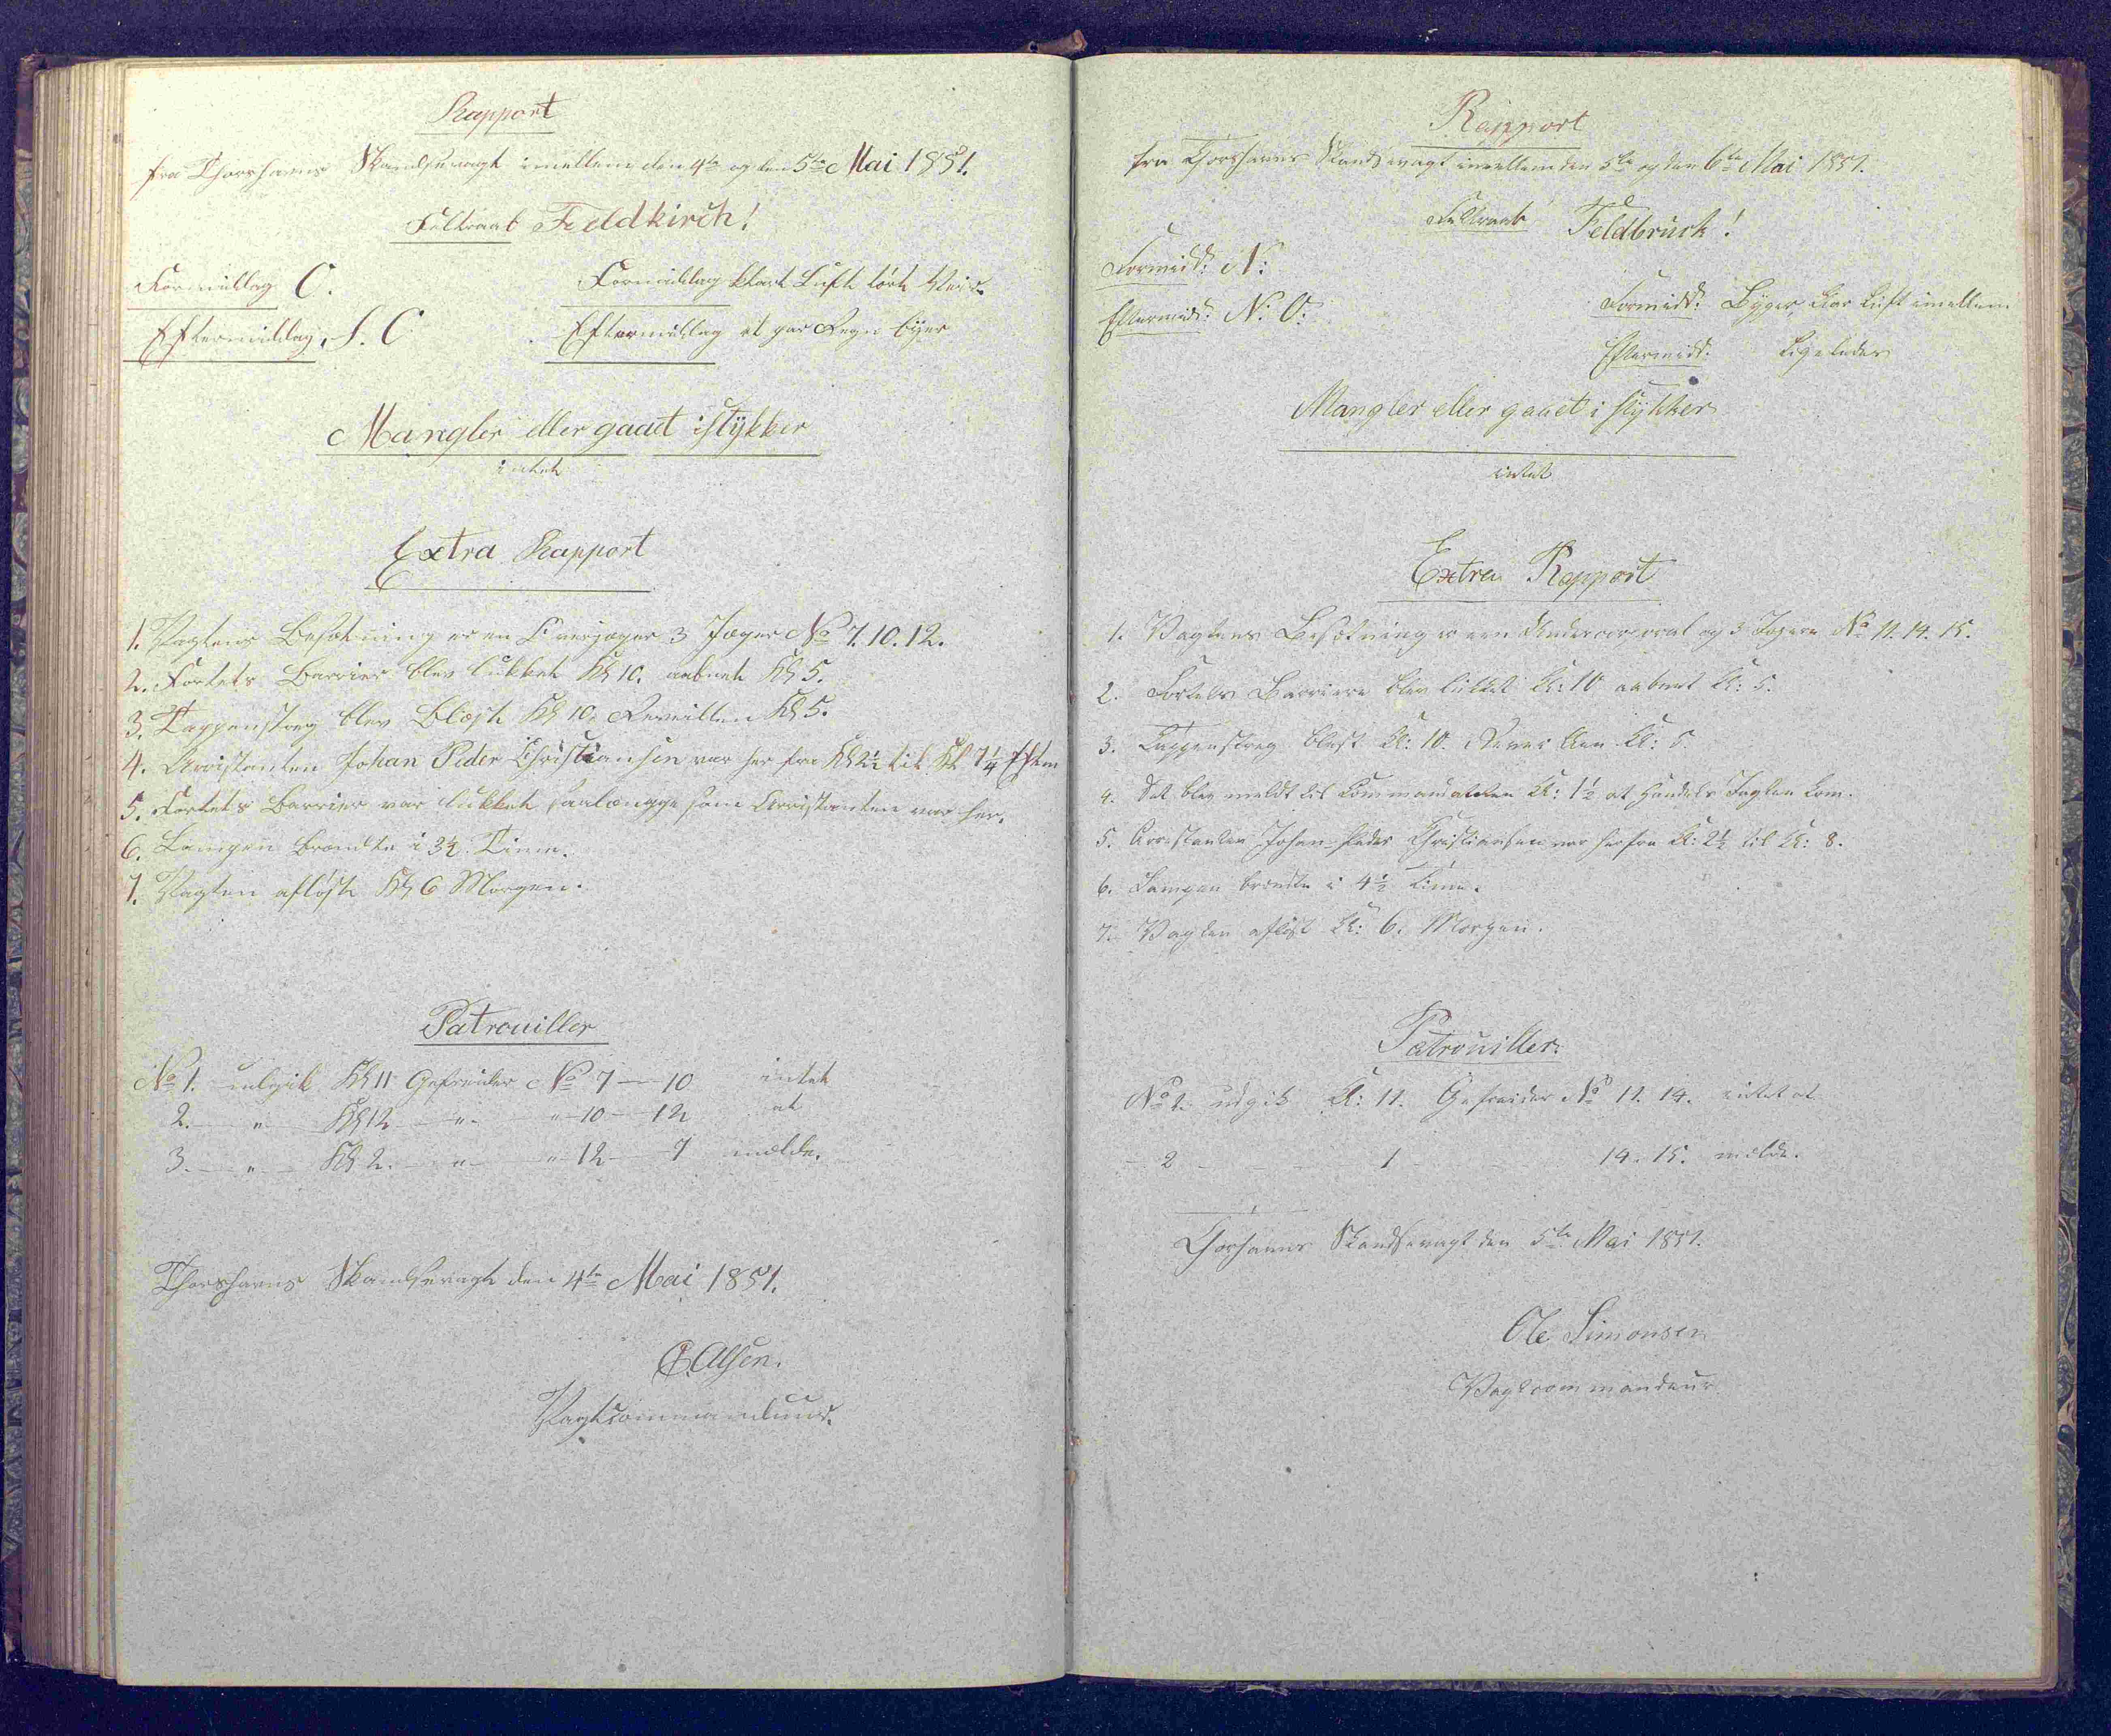 Rapport
fra Thorshavns Skandsevagt imellem den 4de og den 5te Mai 1851.
Feltraab Feldkirch!
Formiddag O.
Formiddag klart Luft tørt Veir
Eftermiddag S. O
Eftermiddag et par Regn byer
Mangler eller gaaet istykker
intet
Extra Rapport
1. Vagtens Besætning er en Overjæger 3 Jæger No 7. 10. 12.
2. Fortets Barrier blev lukket Kl 10. aabnet Kl 5.
3. Tappenstreg blev Blæst Kl 10. Reveillen Kl 5.
4. Arristanten Johan Peder Christiansen var her fra Kl 2½ til Kl 7¼ Eftm
5. Fortets Barrier var lukket saalængge som Arristanten var her.
6. Lampen Brændte i 3½ Time.
7. Vagten afløst Kl 6 Morgen.
Patrouiller
No 1. udgik Kl 11 Gefreider No 7 — 10 intet
2. — " — Kl 12 — " — " — 10 — 12 at
3. — " — Kl 2. — " — " — 12 — 7 mælde.
Thorshavns Skandsevagt den 4de Mai 1851.
Olsen.
Vagtcommandeur.
Rapport
fra Thorshavns Skandsevagt imellem den 5te og den 6te Mai 1851.
Feltraab Feldbruck!
Formidd: N:
Eftermidd: N. O:
Formidd: Byger, klar Luft imellem
Eftermidd: Ligeledes
Mangler eller gaaet i stykker
intet
Extra Rapport
1. Vagtens Besætning er een Undercorporal og 3 Jægere No 11. 14. 15.
2. Fortets Barriere blev lukket Kl: 10 aabnet Kl: 5.
3. Tappenstreg blæst Kl: 10. Reveillen Kl: 5.
4. Det blev meldt til Commandanten Kl: 1½ at Handels Jagten kom.
5. Arrestanten Johan Peder Christiansen var her fra Kl: 2½ til Kl: 8.
6. Lampen brændte i 4½ Time.
7. Vagten afløst Kl: 6. Morgen.
Patrouiller.
No 1. udgik Kl: 11. Gefreider No 11. 14. intet at
— 2 — — — 1 — 14. 15. mælde.
Thorshavns Skandsevagt den 5te Mai 1851.
Ole Simonsen
Vagtcommandeur